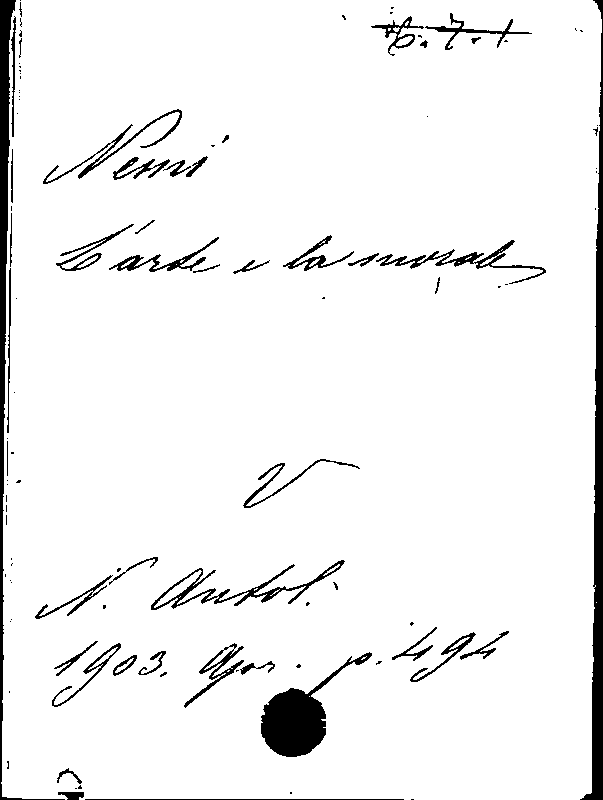 6.7.1
Nemi
L'arte e la morale
V
N. Antol.
1903. Apr. p. 494